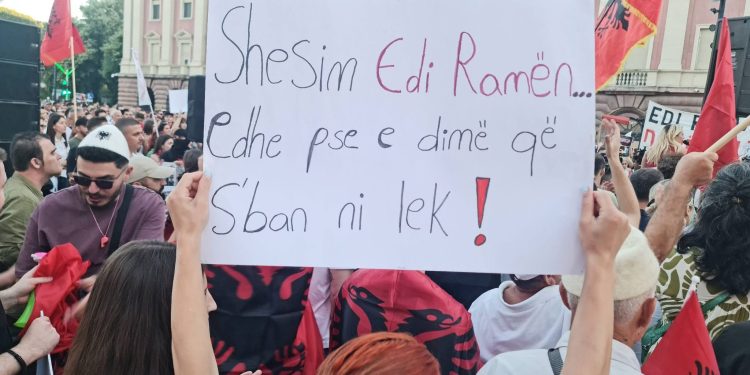 Shesim Edi Ramën...
edhe pse e dimë që
S'ban ni lek!
EDI